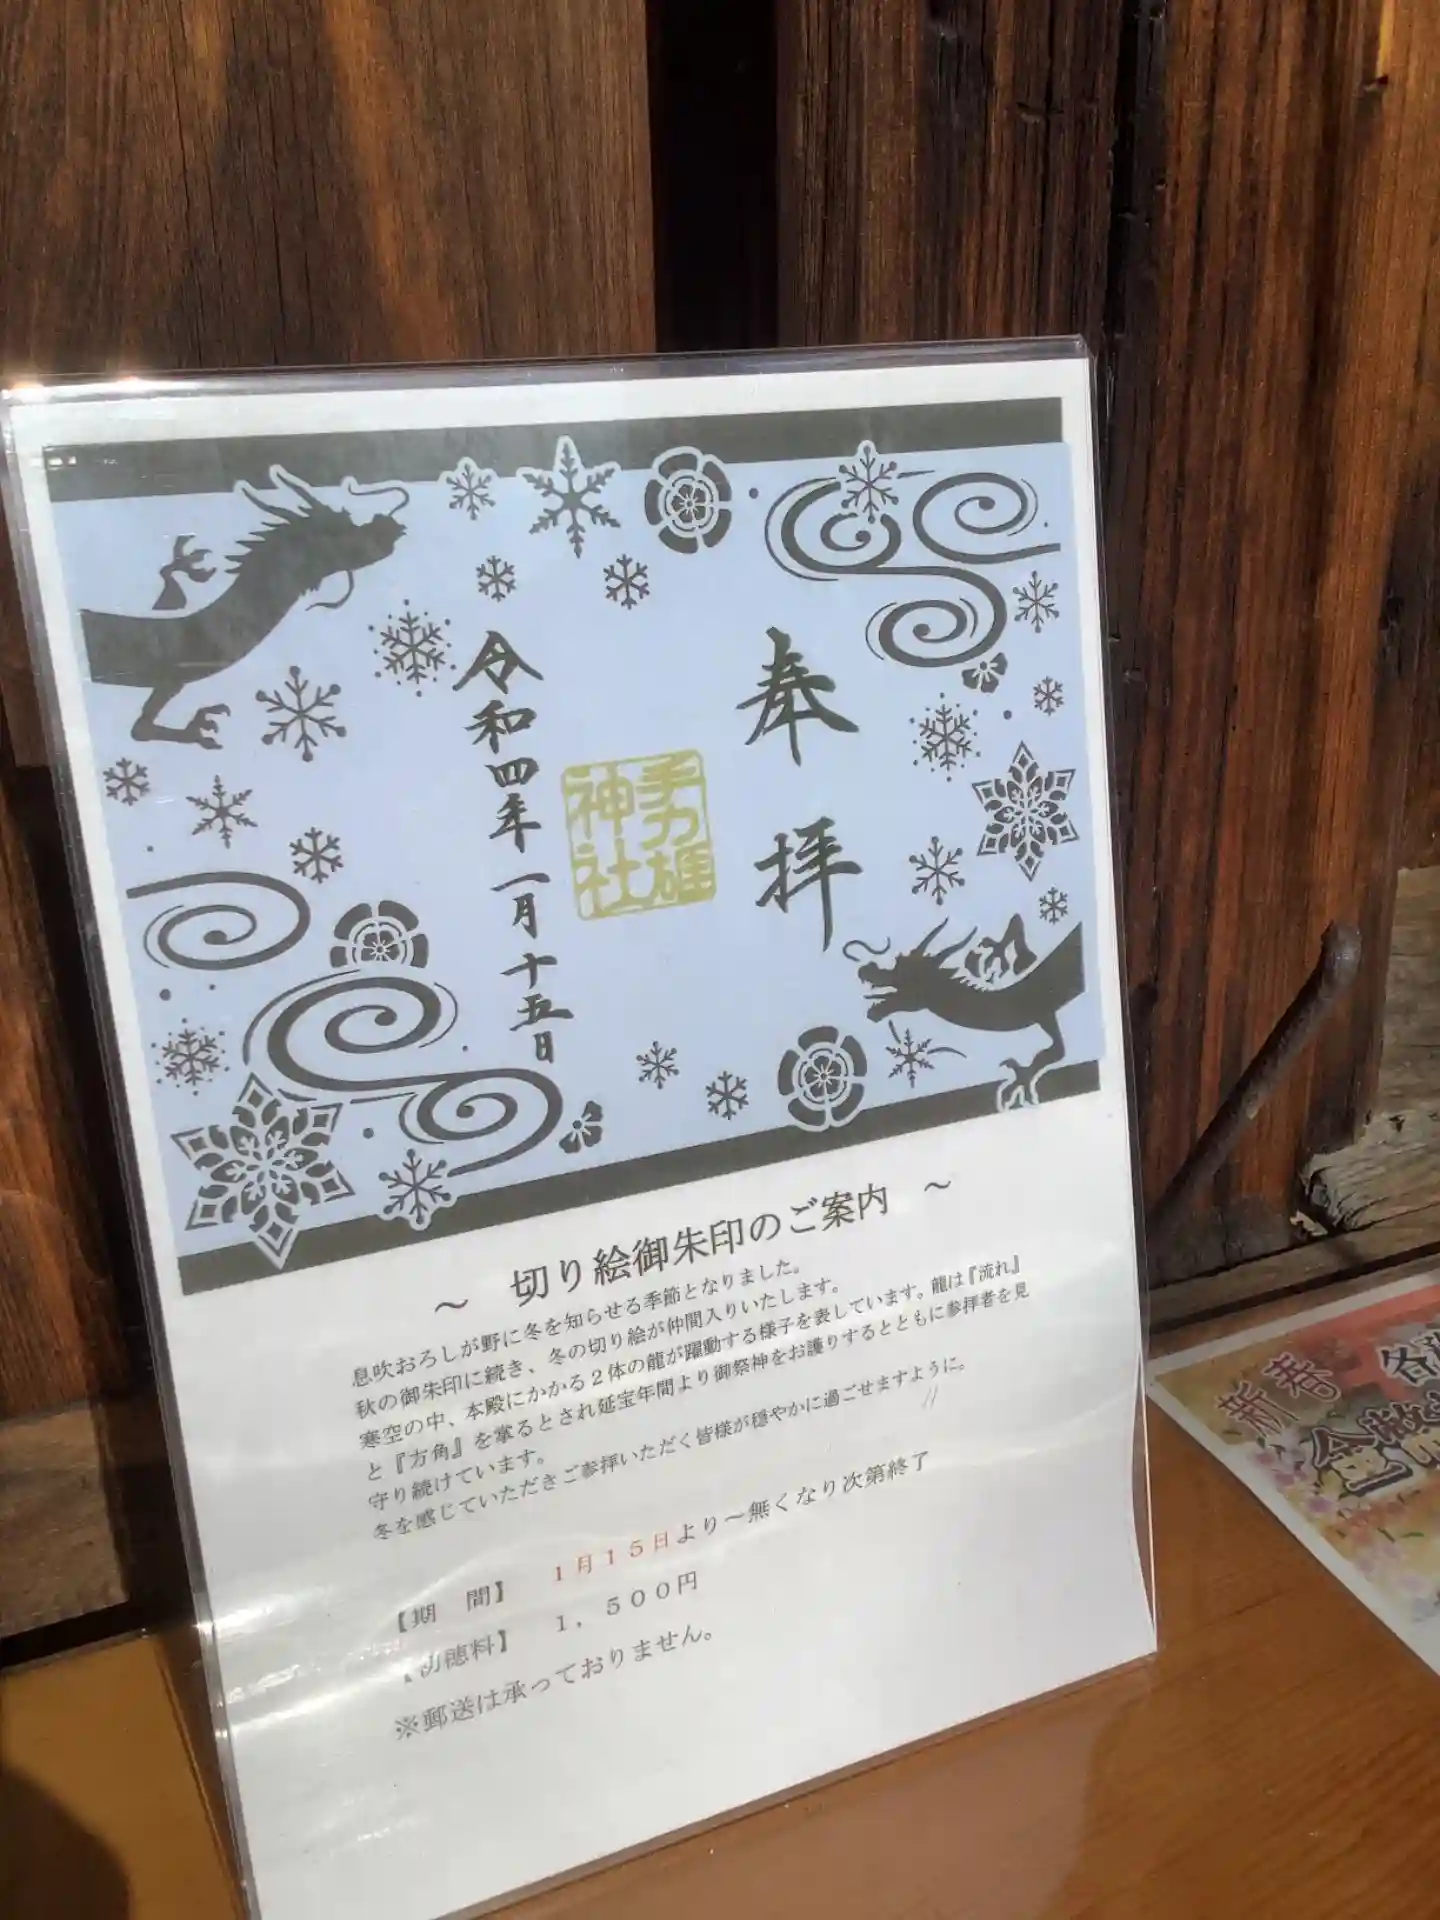 奉拝
手力雄
神社
令和四年一月十五日
～ 切り絵御朱印のご案内 ～
息吹おろしが野に冬を知らせる季節となりました。
秋の御朱印に続き、冬の切り絵が仲間入りいたします。
寒空の中、本殿にかかる2体の龍が躍動する様子を表しています。龍は『流れ』
と『方角』を掌るとされ延宝年間より御祭神をお護りするとともに参拝者を見
守り続けています。
冬を感じていただきご参拝いただく皆様が穏やかに過ごせますように。
【期 間】 1月15日より～無くなり次第終了
【初穂料】 1,500円
※郵送は承っておりません。
新春